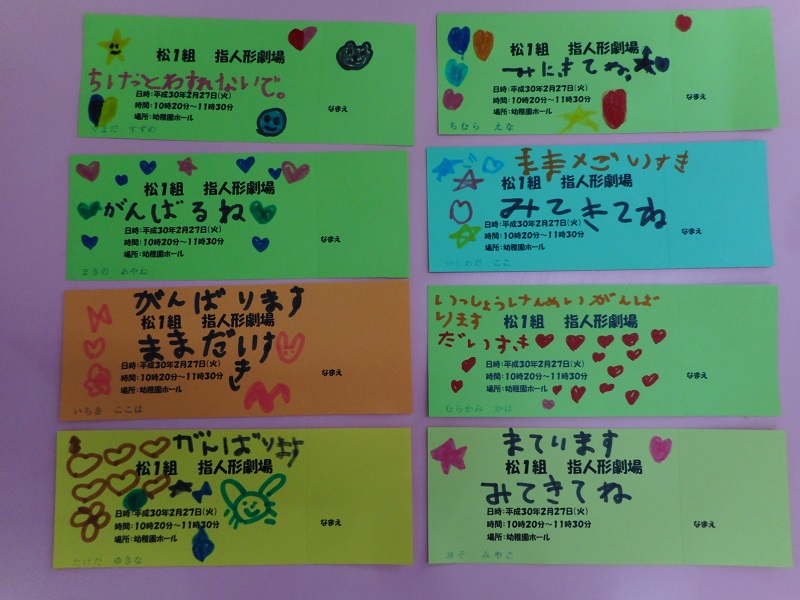 松1組 指人形劇場
ちけっとわすれないで。
日時：平成30年2月27日(火)
時間：10時20分～11時30分
場所：幼稚園ホール
なまえ
やまだ すずめ
松1組 指人形劇場
みにきてね。
日時：平成30年2月27日(火)
時間：10時20分～11時30分
場所：幼稚園ホール
なまえ
ちむら えな
松1組 指人形劇場
がんばるね
日時：平成30年2月27日(火)
時間：10時20分～11時30分
場所：幼稚園ホール
なまえ
まきの あやね
松1組 指人形劇場
みてきてね
日時：平成30年2月27日(火)
時間：10時20分～11時30分
場所：幼稚園ホール
なまえ
いしわだ ここ
がんばります
松1組 指人形劇場
ままだいすき
日時：平成30年2月27日(火)
時間：10時20分～11時30分
場所：幼稚園ホール
なまえ
いちき ここは
いっしょうけんめいがんば
ります
松1組 指人形劇場
だいすき
日時：平成30年2月27日(火)
時間：10時20分～11時30分
場所：幼稚園ホール
なまえ
むらかみ かほ
がんばります
松1組 指人形劇場
日時：平成30年2月27日(火)
時間：10時20分～11時30分
場所：幼稚園ホール
なまえ
たけだ ゆきな
まてります
松1組 指人形劇場
みてきてね
日時：平成30年2月27日(火)
時間：10時20分～11時30分
場所：幼稚園ホール
なまえ
みやこ